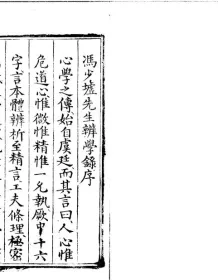 馮少墟先生辨學錄序
心學之傳始自虞廷而其言曰人心惟
危道心惟微惟精惟一允執厥中十六
字言本體辨析至精言工夫條理極密